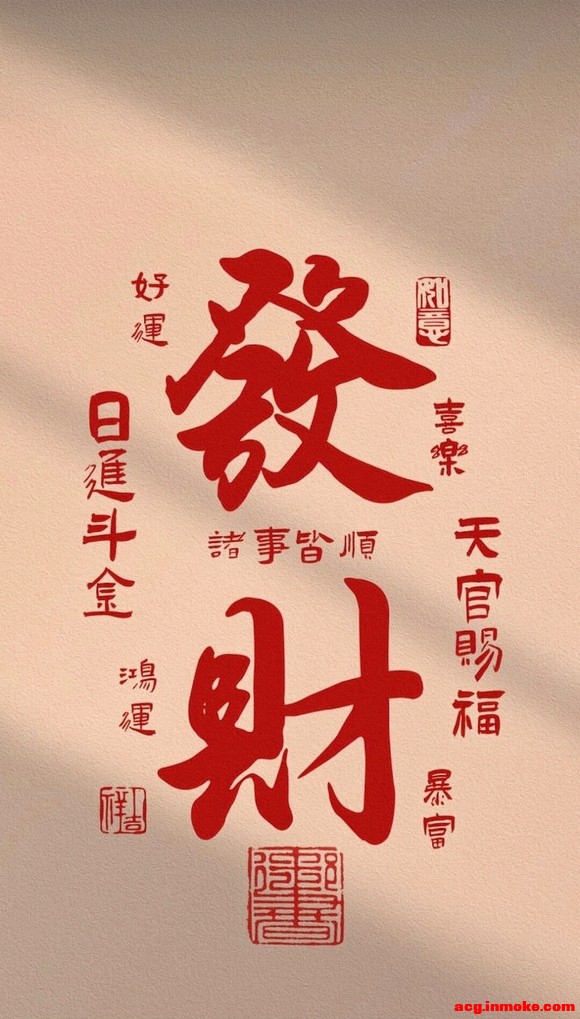 發財
好運
如意
喜樂
日進斗金
諸事皆順
天官賜福
鴻運
暴富
吉祥
acg.inmoke.com